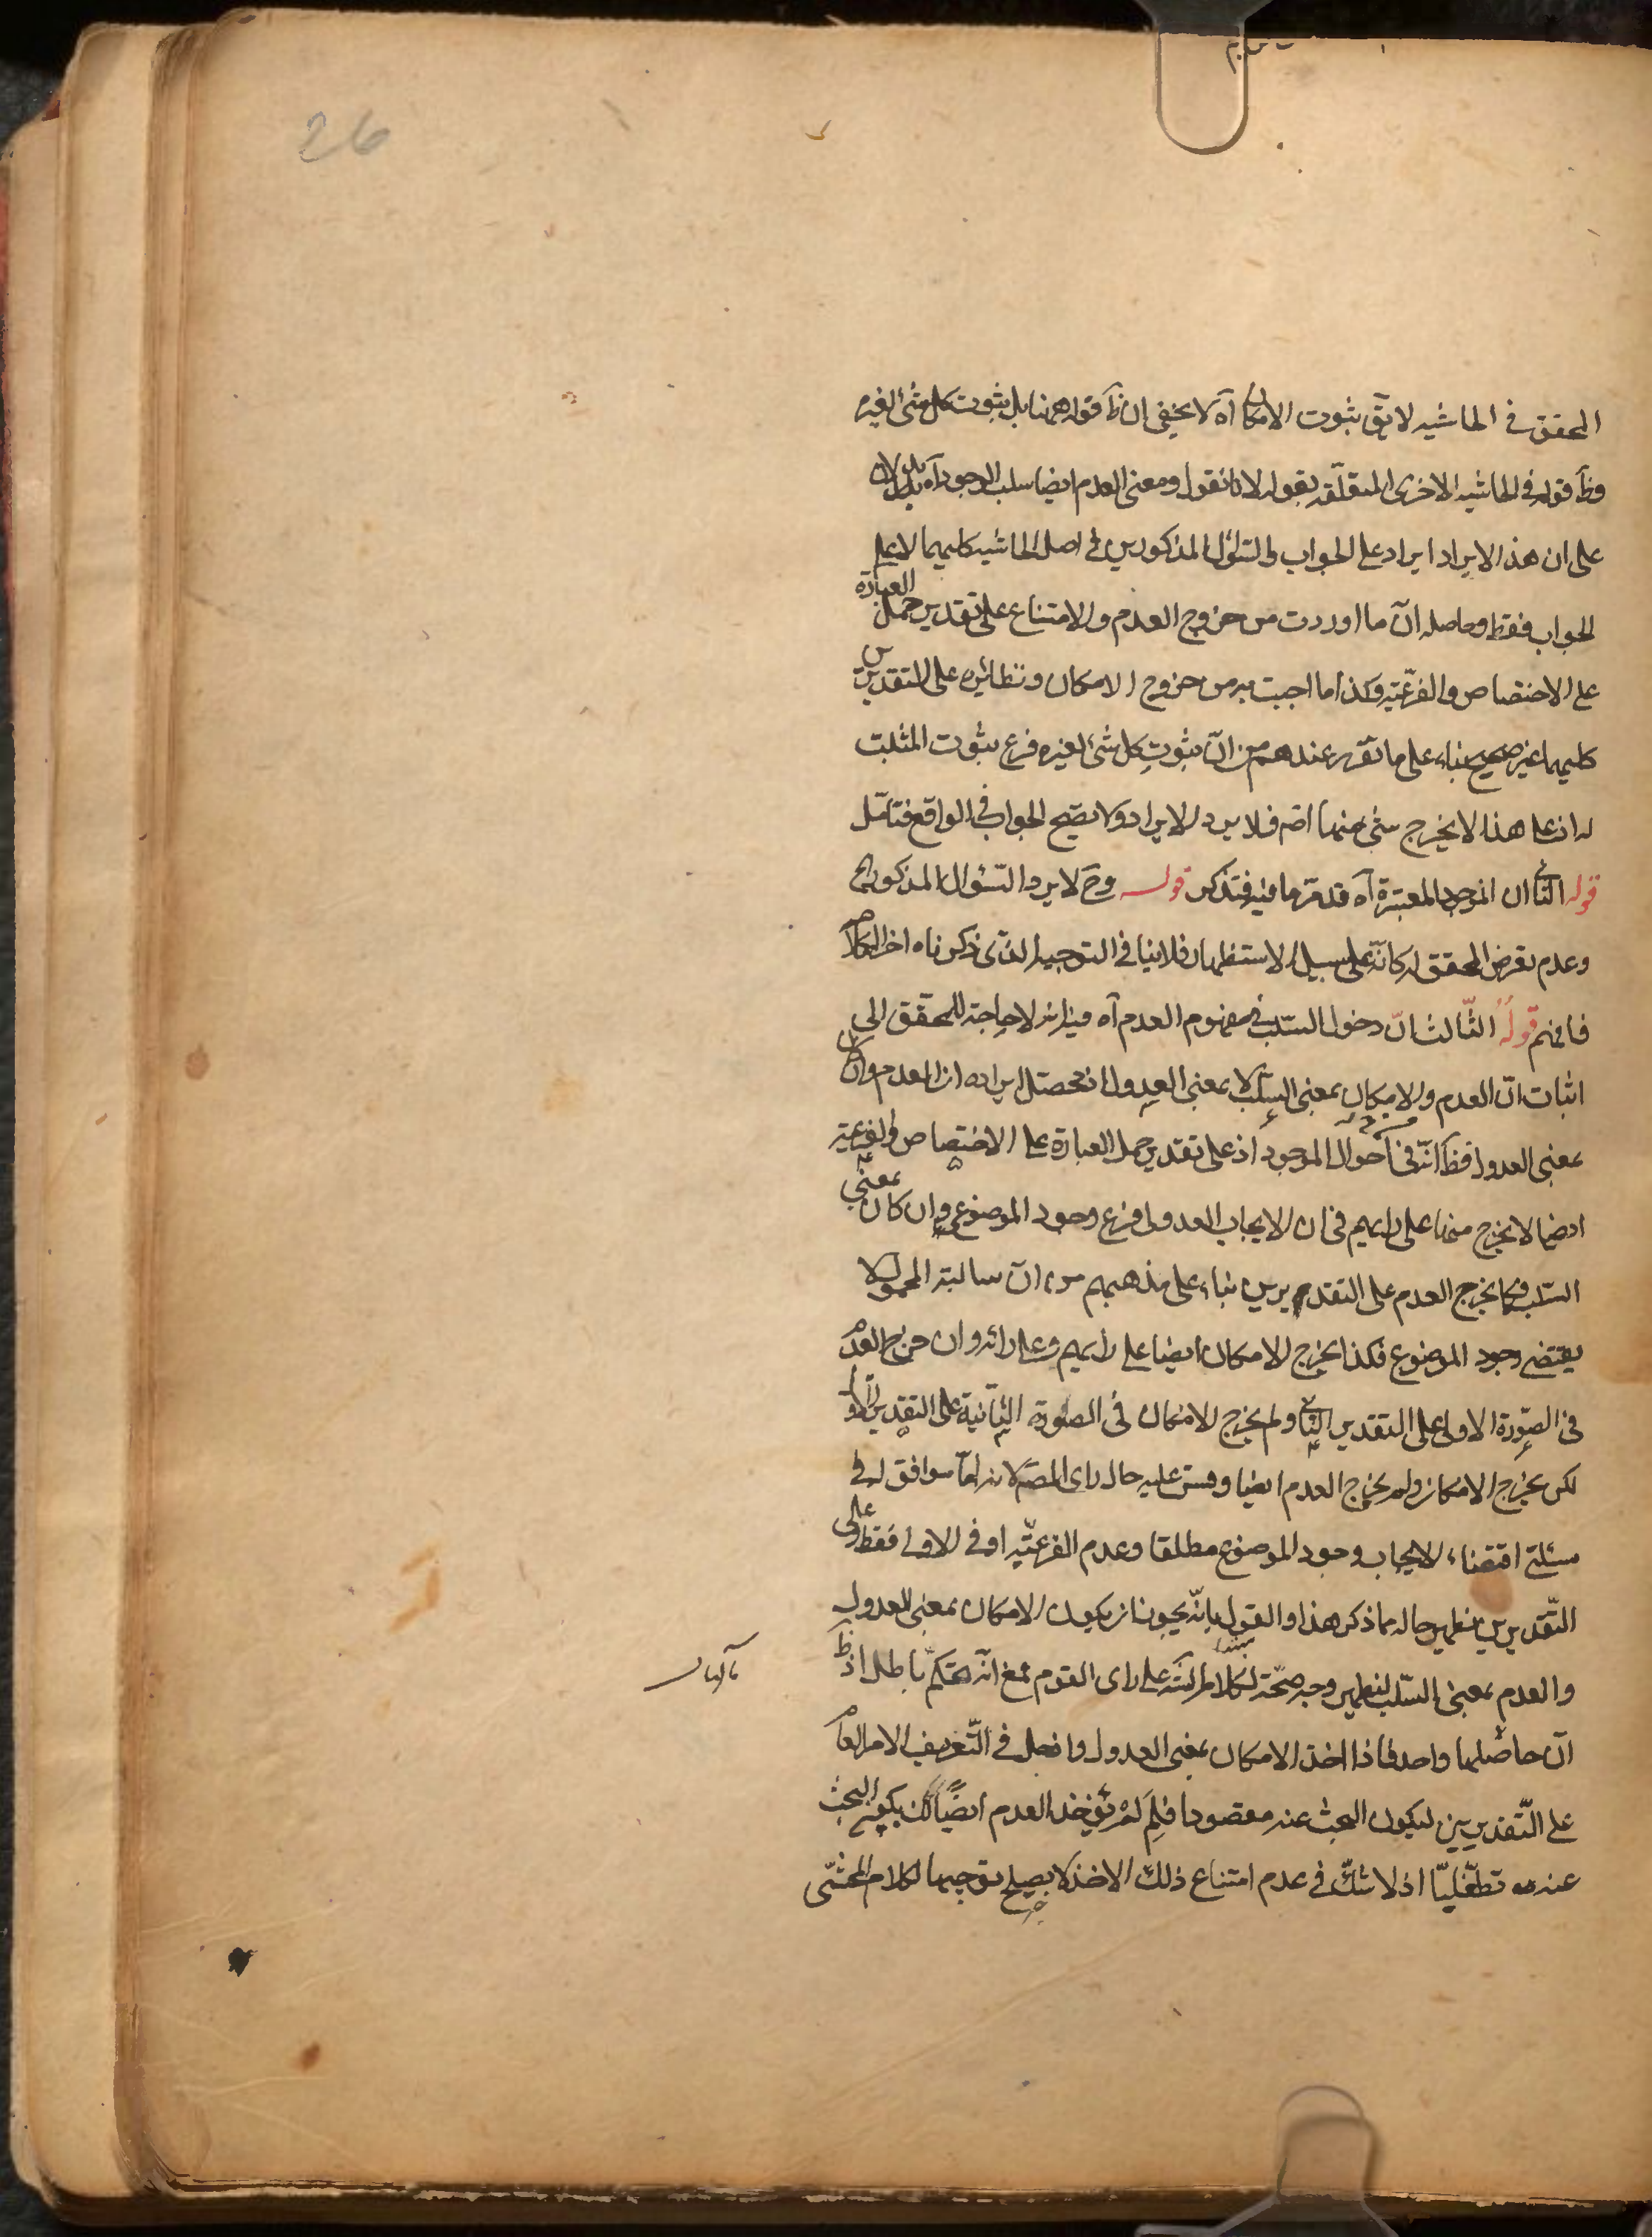 26
المحقق في الحاشيه لا يقَ ثبوت الامكان آه لا يخفى ان ظَ قوله همنا بل ثبوت كل شئ لغيره
وظَ قوله في الحاشيه الاخرى المتعلّقه بقوله لانا نقول ومعنى العدم ايضا سلب الوجود آه يدلان
على ان هذا الايراد ايراد على الجواب والسّؤال المذكورين في اصل الحاشيه كليهما لا على
الجواب فقط وحاصله انّ ما اوردت من خروج العدم والامتناع على تقدير حمل العبارة
على الاختصاص والفرعّيته وكذا ما اجبت به من خروج الامكان ونظائره على التقديرين
كليهما غير صحيح بناء على ما تقرر عندهم من انّ ثبوت كل شئ لغيره فرع ثبوت المثبت
له اذ على هذا لا يخرج شئ منهما اصَه فلا يرد الايراد ولا يصّح الجواب في الواقع فتامّل
قوله الثانى ان الموجود المعتبرة آه قد مرّ ما فيه فتذكر قوله وحَ لا يرد السّئوال المذكور آه
وعدم تعرض المحقق له كانّه على سبيل الاستظهار فلا ينافي التوجيه الذّى ذكرناه اخر الكلام
فافهم قوله الثّالث انّ دخول السّلب في مفهوم العدم آه فيه انه لا حاجة للمحقّق الى
اثبات انّ العدم والامكان بمعنى السّلب لا بمعنى العدول اذ محصّل ايراده ان العدم وان كان
بمعنى العدول فظَ انّه من احوال الموجود اذ على تقدير حمل العبارة على الاختصاص والفرعيّة
ايضا لا يخرج منها على رايهم في ان الايجاب العدولى فرع وجود الموضوع وان كان بمعنى
السّلب فكما يخرج العدم على التقديرين بناء على مذهبهم من انّ سالبة المحمول لا
يقتضى وجود الموضوع فكذا يخرج الامكان ايضا على رايهم وعلى رائه وان خرج العدم
في الصّورة الاولى على التقدير الثانى ولم يخرج الامكان في الصّورة الثّانية على التقدير الاوّل
لكن يخرج الامكان ولم يخرج العدم ايضا وقس عليه حال راى المصَ لانه امّا موافق له في
مسئلة اقتضاء الايجاب وجود الموضوع مطلقا وعدم الفرعيّه او في الاولى فقط وعلى
التّقديرين يظهر حاله مما ذكر هذا والقول بانّه يجوز ان يكون الامكان بمعنى العدول
والعدم بمعنى السّلب ليظهر وجه صحّة لكلام على راى القوم فمع انّه تحكّم باطل اذ ظَ
انّ حاصلهما واحد فاذا اخذ الامكان بمعنى العدول وادخل في التّعريف الامر العام
على التّقديرين ليكون البحث عنه مقصودا فلِمَ لَمْ يؤخذ العدم ايضًا كذلك يكون البحث
عنه تطفّليّا اذ لا شكّ في عدم امتناع ذلك الاخذ لا يصلح توجيها لكلام المحشّى